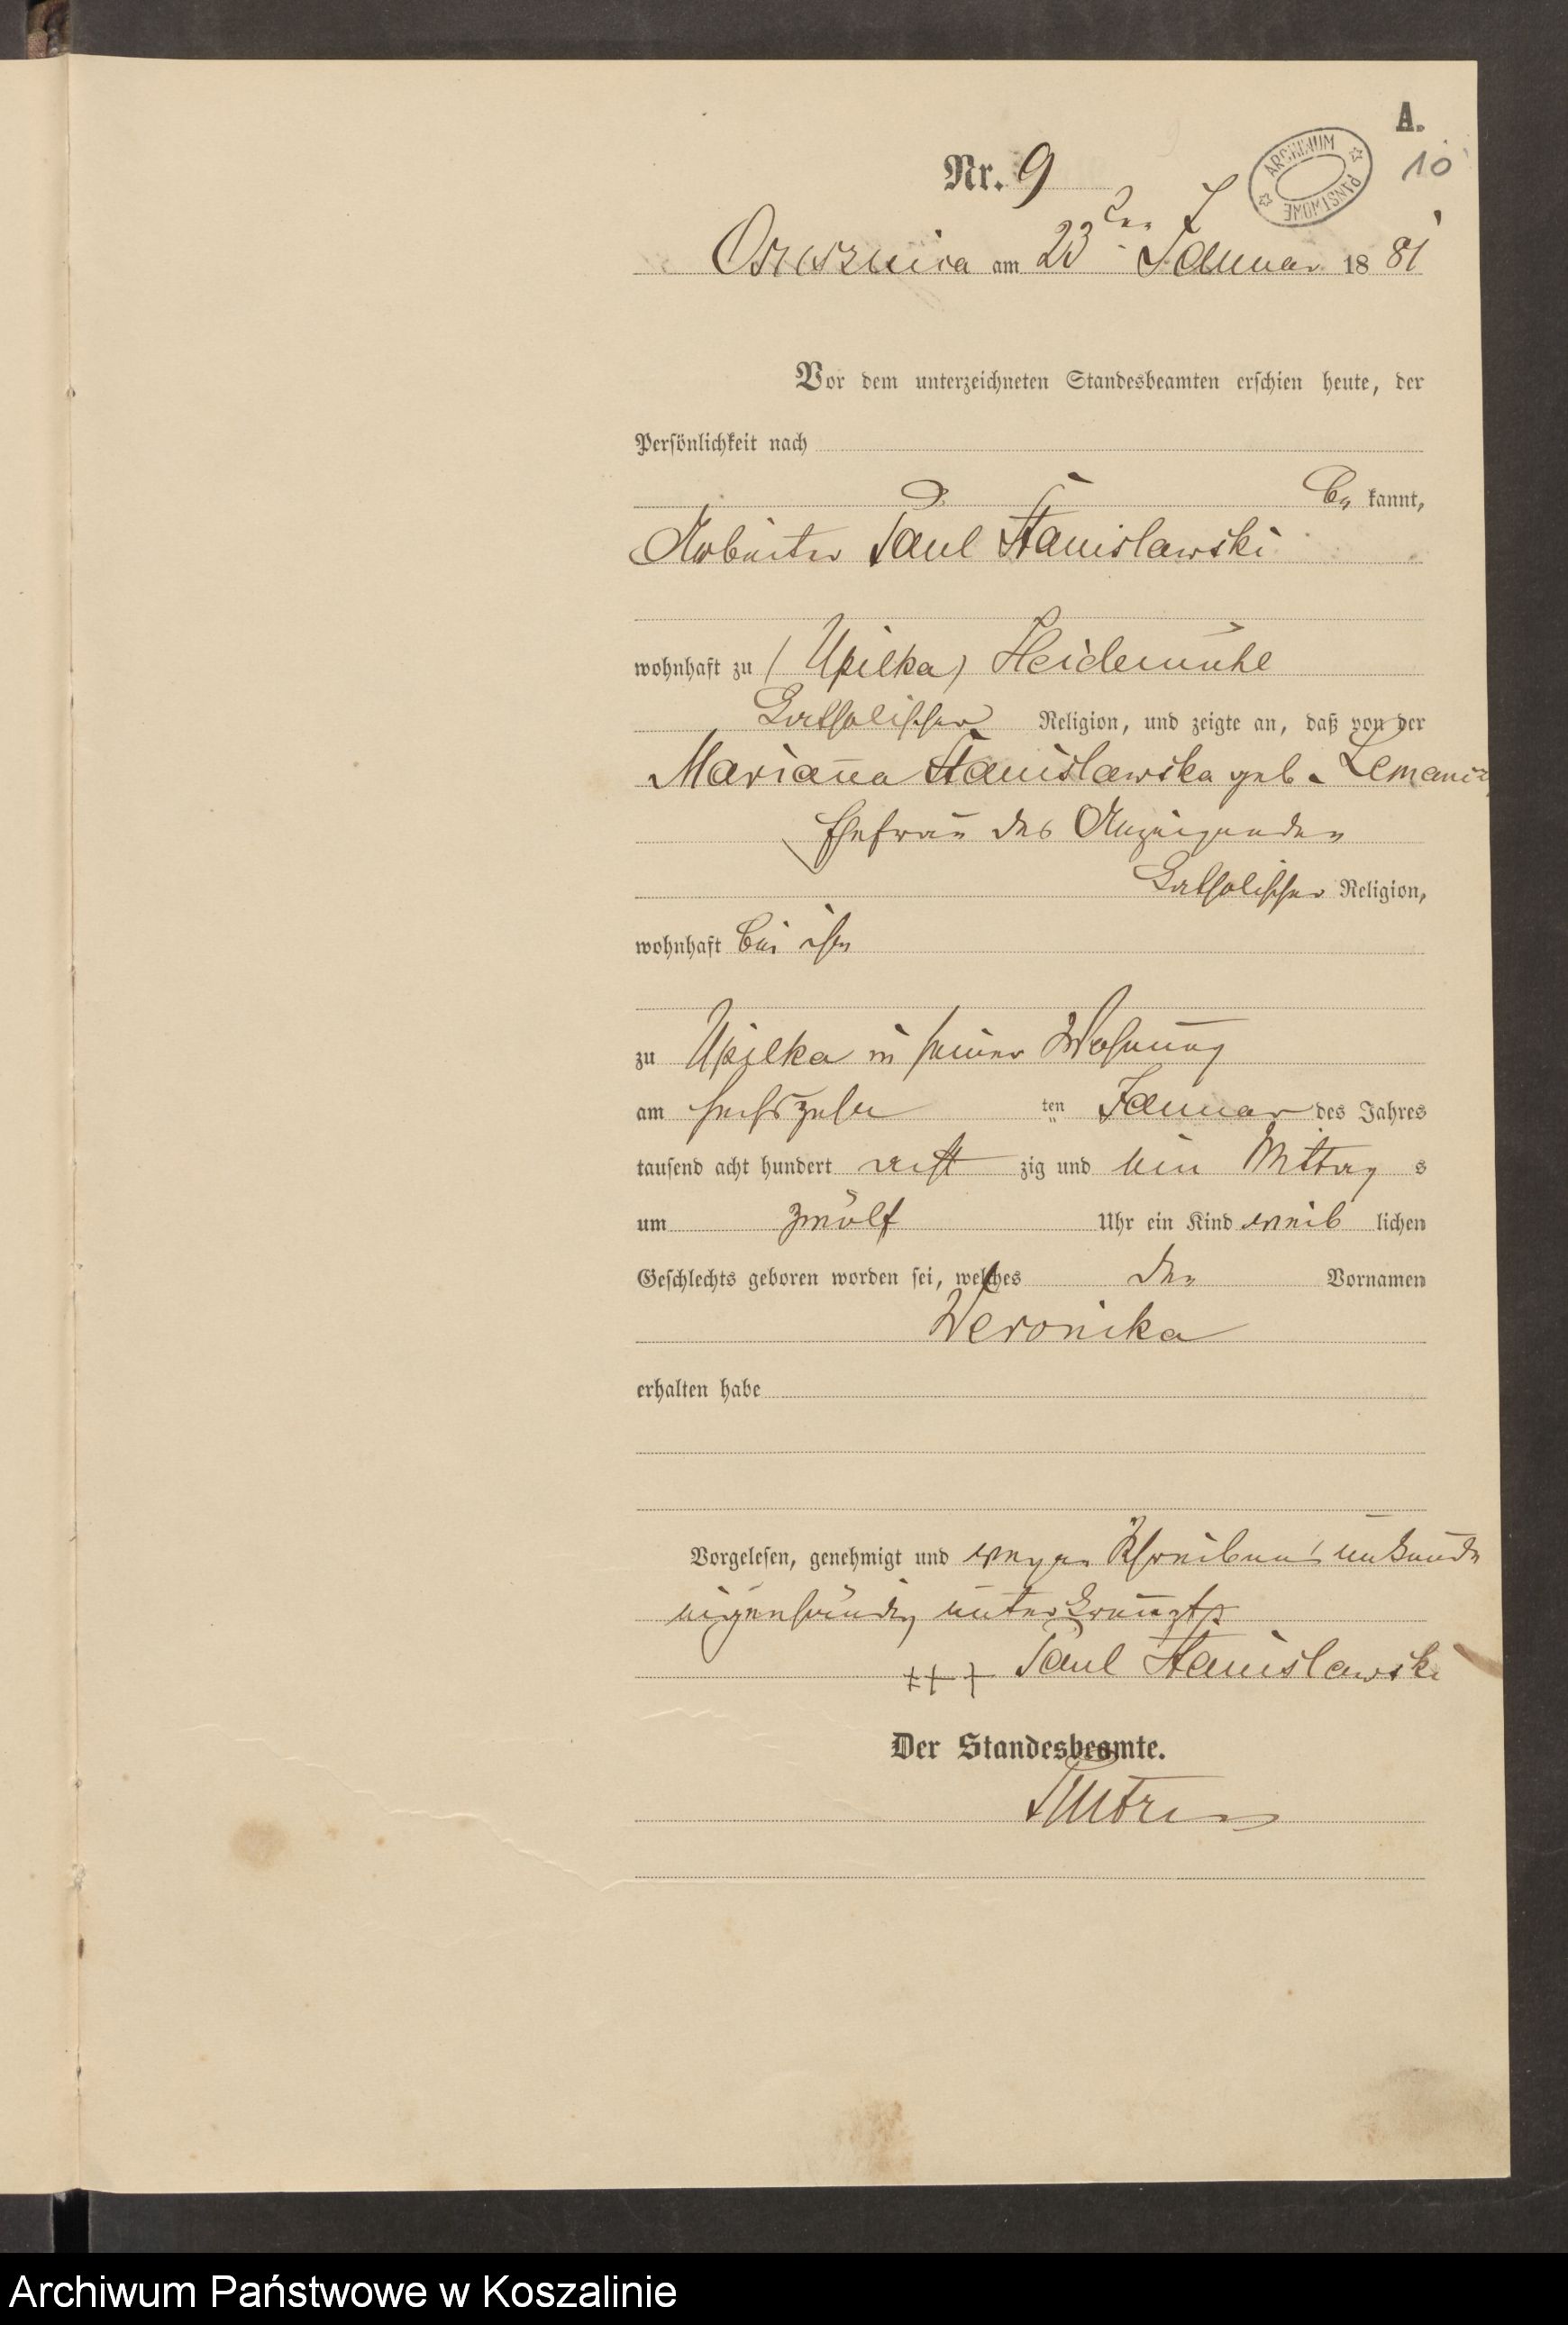 A.
ARCHIWUM PAŃSTWOWE
10
Nr. 9
am 23ten Januar 1881
Vor dem unterzeichneten Standesbeamten erschien heute, der
Persönlichkeit nach
be kannt,
Arbeiter Paul Stanislawski
wohnhaft zu (Upilka) Heidemühl
katholischer Religion, und zeigte an, daß von der
Marianna Stanislawska geb.
Ehefrau des Anzeigenden
katholischer Religion,
wohnhaft bei ihm
zu Upilka in seiner Wohnung
am sechszehn ten Januar des Jahres
tausend acht hundert acht zig und ein Mittag s
um zwölf Uhr ein Kind weib lichen
Geschlechts geboren worden sei, welches den Vornamen
Veronika
erhalten habe
Vorgelesen, genehmigt und wegen Schreibens unkunde
eigenhändig unterkreuzt
+++ Paul Stanislawski
Der Standesbeamte.
Archiwum Państwowe w Koszalinie